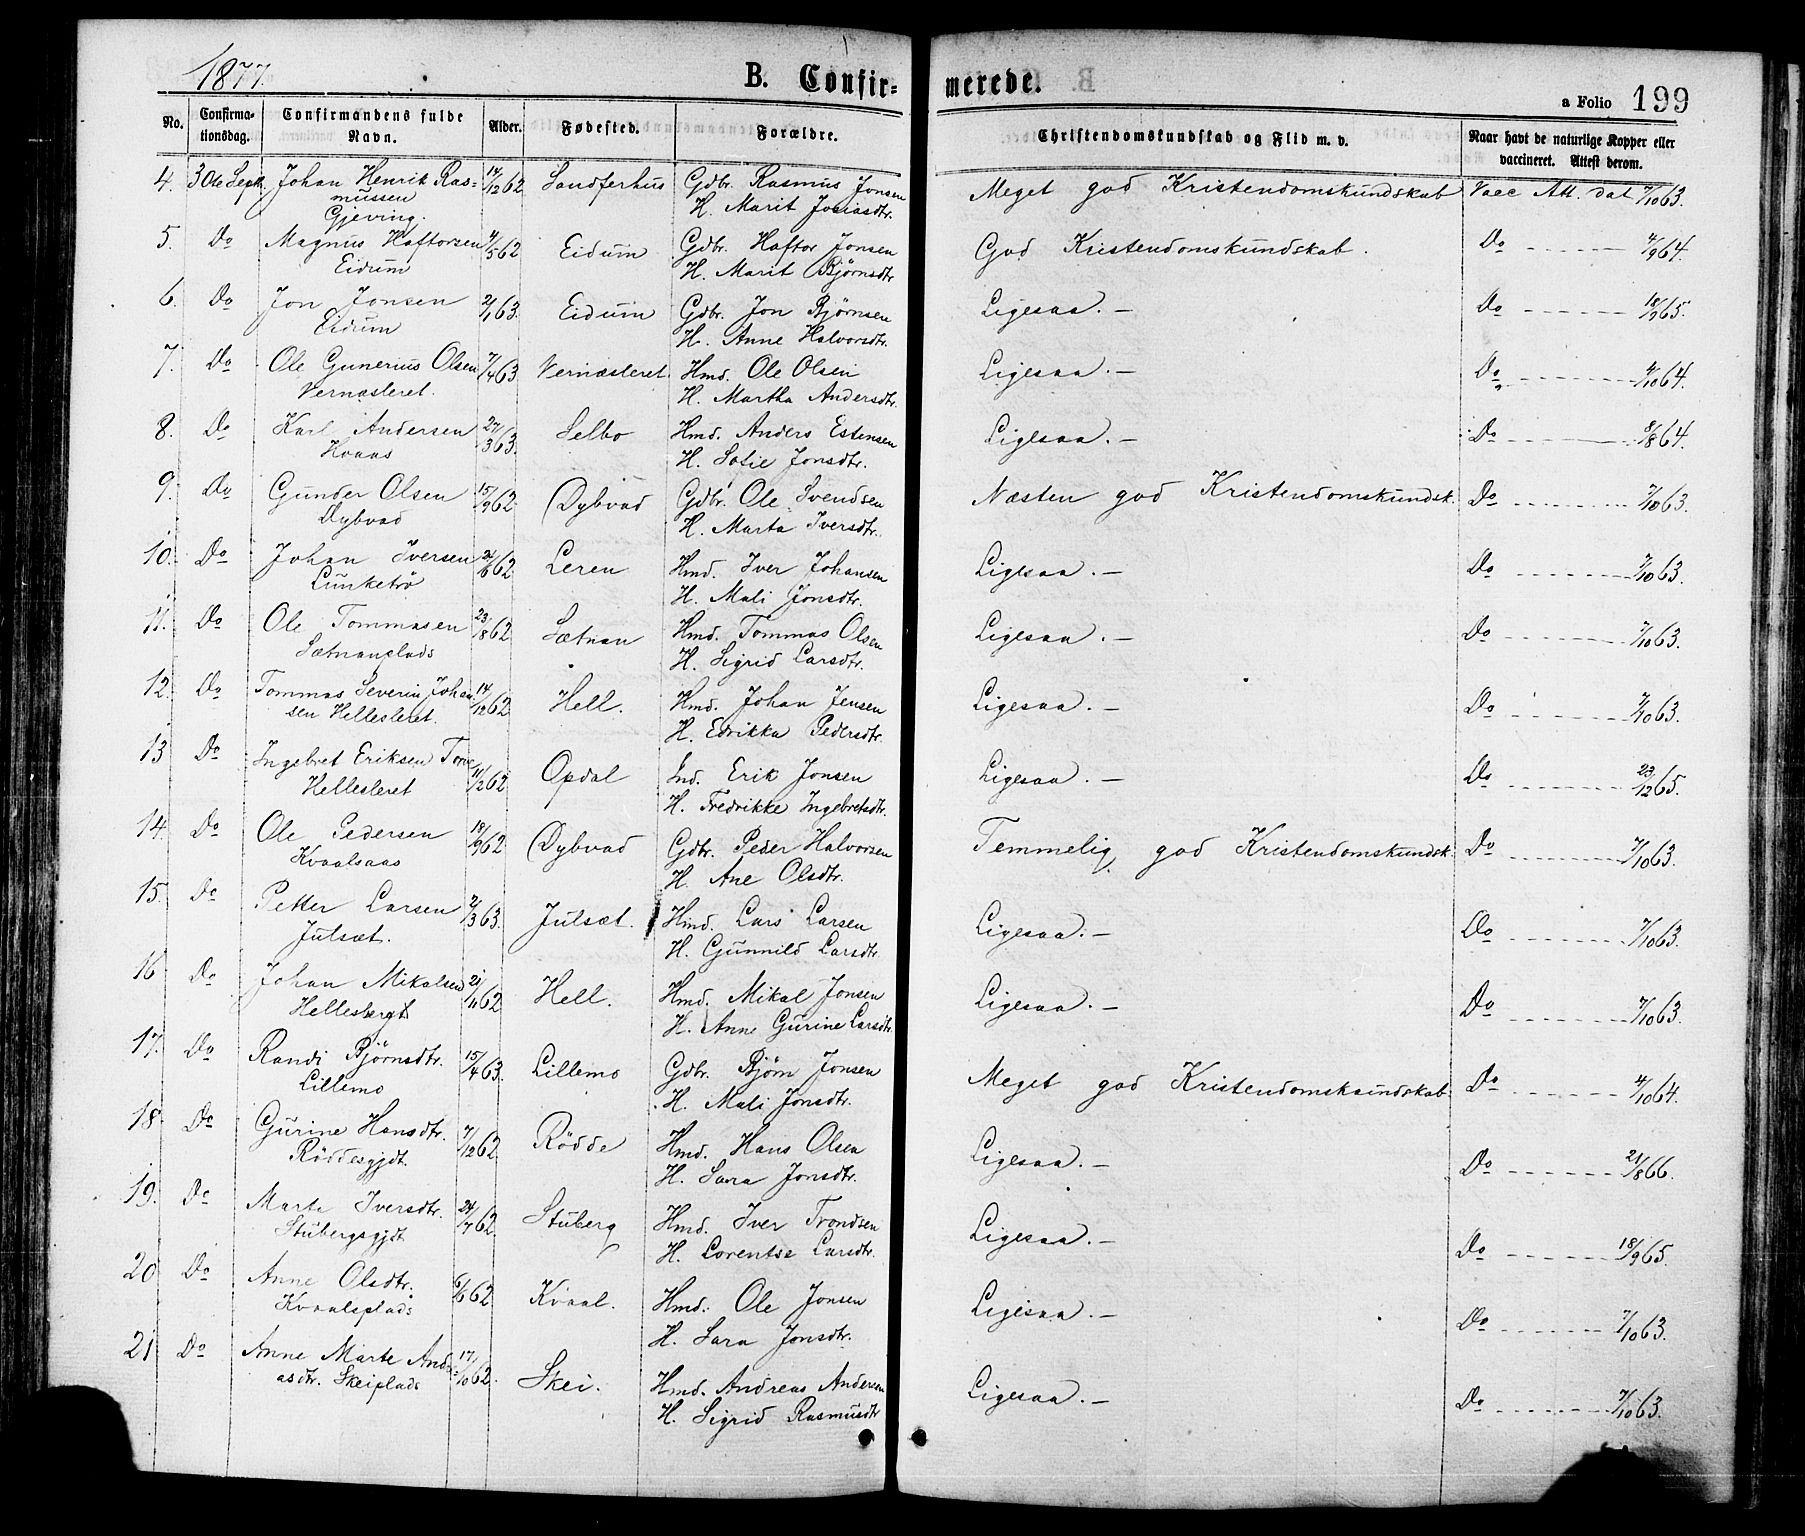 1877.
B. Confir-
merede.
a Folio 199
No. Confirma-tionsdag. Confirmandens fulde Navn. Alder. Fødested. Forældre. Christendomskundskab og Flid m. v. Naar havt de naturlige Kopper eller vaccineret. Attest derom.
4. 30te Sept. Johan Henrik Ras- 14/12 62 Sandferhus Gdbr. Rasmus Jonsen Meget god Kristendomskundskab Vacc Att. dat 7/10 63.
mussen H. Marit Josiasdtr.
Gjeving.
5. Do Magnus Haftorsen 4/5 62 Eidum Gdbr. Haftor Jonsen God Kristendomskundskab. Do 4/9 64.
Eidum H. Marit Bjørnsdtr
6. Do Jon Jonsen 2/1 63. Eidum Gdbr. Jon Bjørnsen Ligesaa. — Do 18/9 65.
Eidum H. Anne Halvorsdtr.
7. Do Ole Gunerius Olsen 7/4 63 Vernæsleret. Hmd. Ole Olsen Ligesaa. — Do 4/10 64.
Vernæsleret. H. Martha Andersdtr.
8. Do Karl Andersen 27/3 63. Selbo Hmd. Anders Estensen Ligesaa. — Do 8/8 64.
Hvaas H. Sofie Jonsdtr.
9. Do Gunder Olsen 15/9 62 Dybvad Gdbr. Ole Svendsen Næsten god Kristendomskundsk. Do 7/10 63.
Dybvad H. Marta Iversdtr.
10. Do Johan Iversen 62 Leren Hmd. Iver Johansen Ligesaa. — Do 7/10 63.
Lunketrø H. Mali Jonsdtr.
11. Do Ole Tommasen 23/8 62 Sætnan Hmd. Tommas Olsen Ligesaa. — Do 7/10 63.
Sætnanplads H. Sigrid Larsdtr.
12. Do Tommas Severin Johan 14/12 62 Hell. Hmd. Johan Jensen Ligesaa. — Do 7/10 63.
sen Hellesleret. H. Edrikka Pedersdtr.
13 Do Ingebret Eriksen 11/2 62 Opdal Ind. Erik Jonsen Ligesaa. — Do 23/12 65.
Hellesleret H. Fredrikke Ingebretsdtr.
14. Do Ole Pedersen 19/9 62 Dybvad Gdbr. Peder Halvorsen Temmelig god Kristendomskundsk. Do 7/10 63.
Kvaalsaas H. Ane Olsdtr.
15. Do Petter Larsen 2/3 63. Julsæt. Hmd. Lars Larsen Ligesaa. — Do 7/10 63.
Julsæt. H. Gunnild Larsdtr.
16 Do Johan Mikalsen 21/11 62 Hell. Hmd. Mikal Jonsen Ligesaa. — Do 7/10 63.
Hellesbergt H. Anne Gurine Larsdtr.
17. Do Randi Bjørnsdtr. 15/4 63. Lillemo Gdbr. Bjørn Jonsen Meget god Kristendomskundskab. Do 4/10 64.
Lillemo H. Mali Jonsdtr.
18. Do Gurine Hansdtr. 7/12 62. Rødde Hmd. Hans Olsen Ligesaa. — Do 21/8 66.
Røddesgjdt. H. Sara Jonsdtr.
19. Do Marta Iversdtr. 24/7 62. Stuberg Hmd. Iver Trondsen Ligesaa. — Do 18/9 65.
Stubergsgjdt H. Lorentse Larsdtr.
20 Do Anne Olsdtr. 62 Kvaal. Hmd. Ole Jonsen Ligesaa. — Do 7/10 63.
Kvaalsplads H. Sara Jonsdtr.
21 Do Anne Marte And- 17/10 62. Skei. Hmd. Andreas Andersen Ligesaa. — Do 7/10 63.
asdtr. Skeiplads H. Sigrid Rasmusdtr